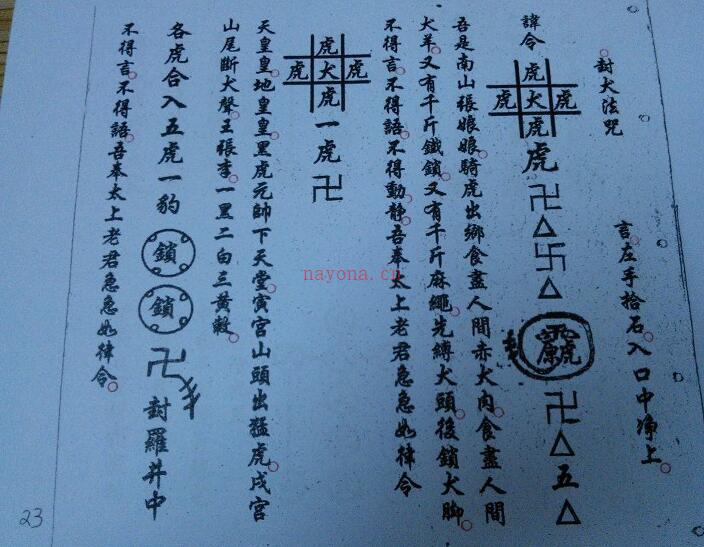 言。左手拾石。入口中淨上。
封犬法咒
諱令
虎
虎犬虎
虎
虎卍△卐△
卍△五△
吾是南山張娘娘。騎虎出鄉食盡人間赤犬肉。食盡人間
犬羊。又有千斤鐵鎖。又有千斤麻繩。先縛犬頭。後鎖犬腳。
不得言。不得語。不得動靜。吾奉太上老君急急如律令
虎
虎犬虎
虎
一虎卍
天皇皇。地皇皇。黑虎元帥下天堂。寅宮山頭出猛虎。戌宮
山尾斷犬聲。王張李。一黑二白三黃殺。
各虎合入五虎一豹
鎖
鎖
卍
封羅井中
不得言。不得語。吾奉太上老君急急如律令。
23
nayona.cn